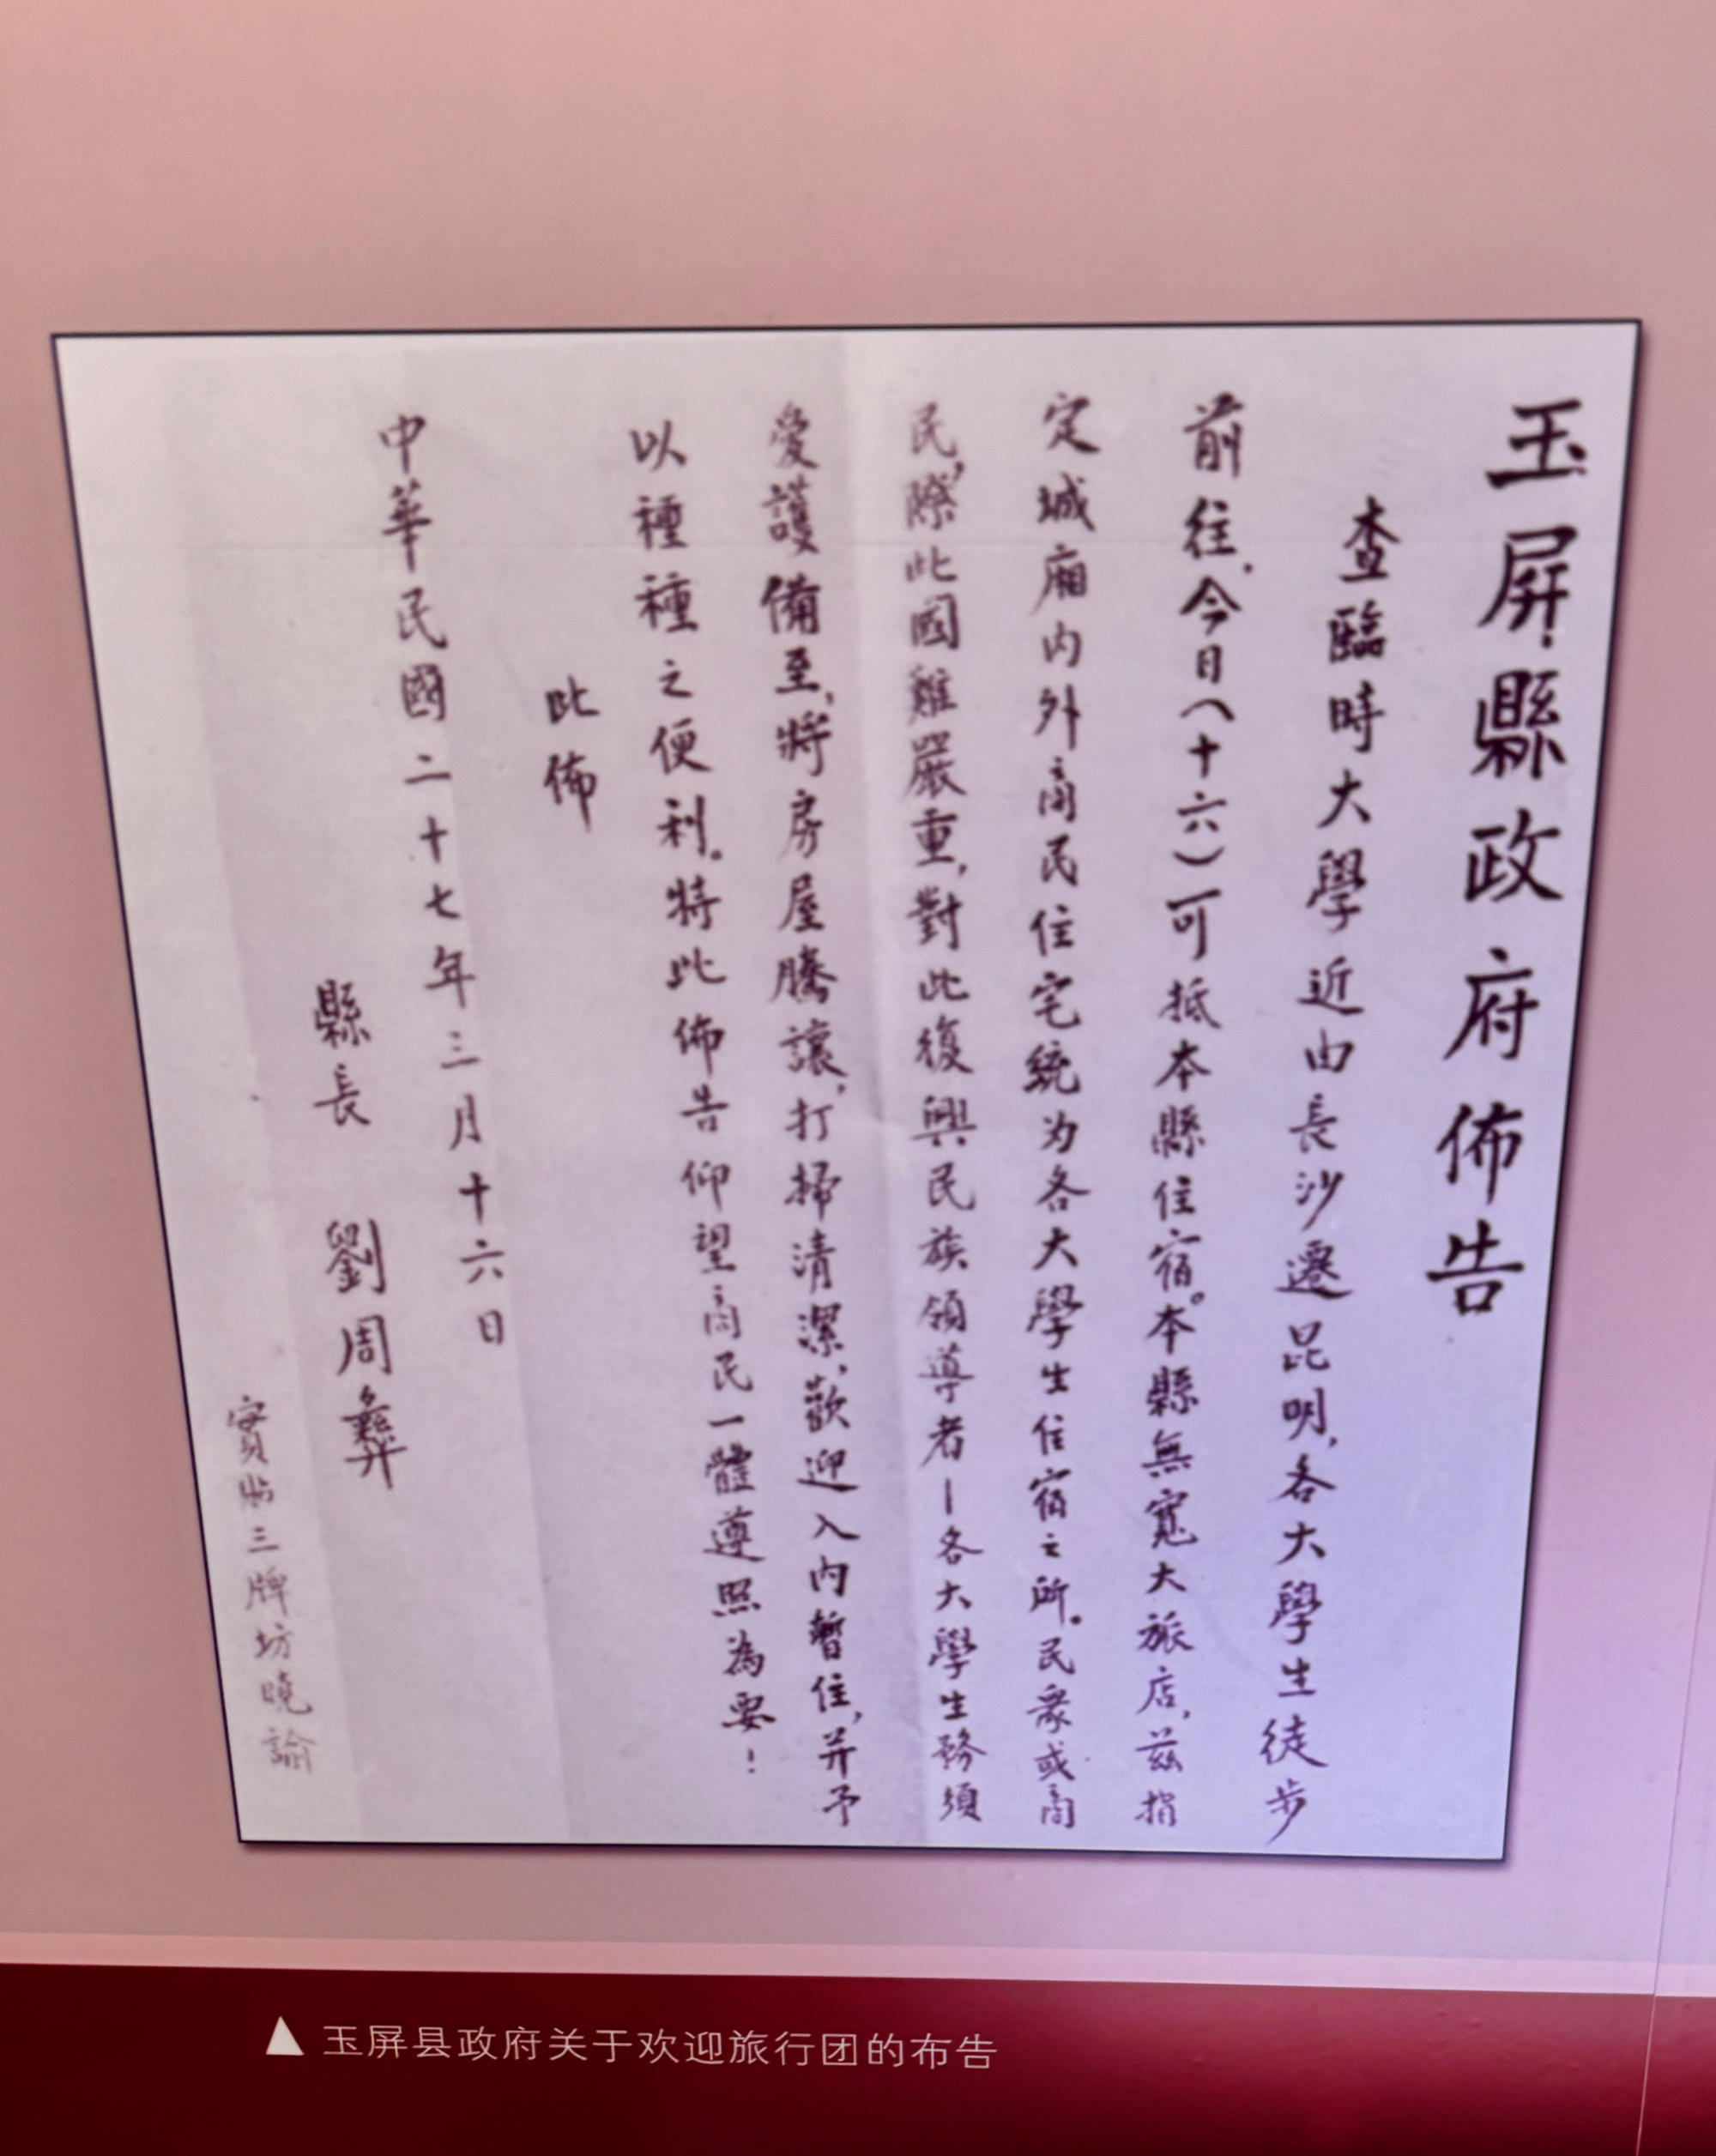 玉屏縣政府佈告
查臨時大學近由長沙遷昆明,各大學生徒步
前往.今日(十六)可抵本縣住宿。本縣無寬大旅店,茲指
定城廂内外商民住宅統为各大學生住宿之所。民衆或商
民,際此國難嚴重,對此復興民族領導者—各大學生務須
愛護備至,將房屋騰讓,打掃清潔,歡迎入内暫住,并予
以種種之便利。特此佈告仰望商民一體遵照為要!
此佈
中華民國二十七年三月十六日
縣長 劉周彝
實貼三牌坊曉諭
▲玉屏县政府关于欢迎旅行团的布告